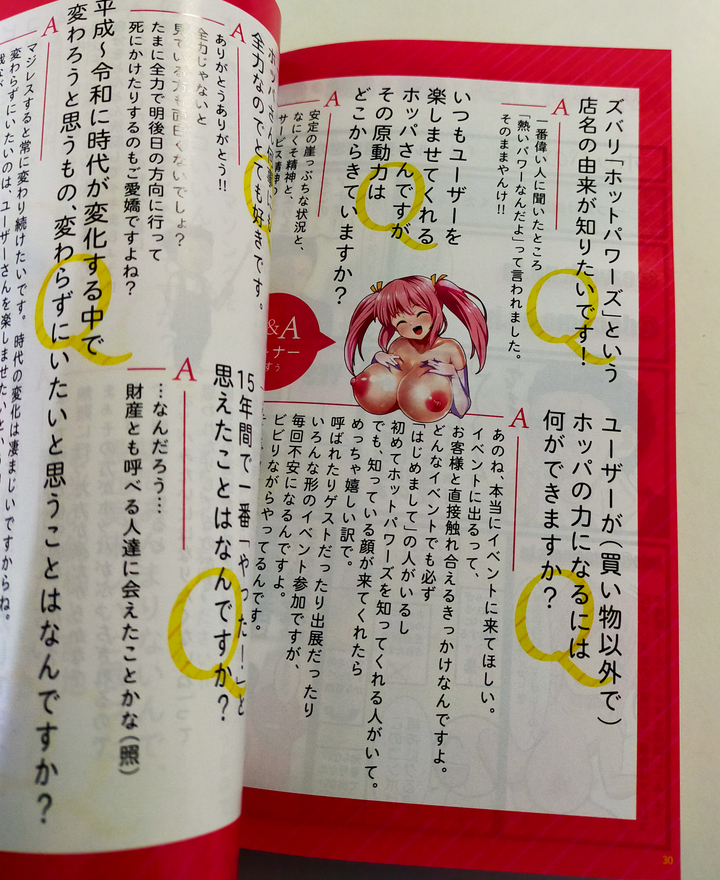 Q
ズバリ「ホットパワーズ」という
店名の由来が知りたいです！
A
一番偉い人に聞いたところ
「熱いパワーなんだよ」って言われました。
そのままやんけ!!
Q
いつもユーザーを
楽しませてくれる
ホッパさんですが、
その原動力は
どこからきていますか？
A
安定の崖っぷちな状況と、
なにくそ精神と、
サービス精神
&A
ーナー
Q
ユーザーが(買い物以外で)
ホッパの力になるには
何ができますか？
A
あのね、本当にイベントに来てほしい。
イベントに出るって、
お客様と直接触れ合えるきっかけなんですよ。
どんなイベントでも必ず
「はじめまして」の人がいるし
初めてホットパワーズを知ってくれる人がいて。
でも、知っている顔が来てくれたら
めっちゃ嬉しい訳で。
呼ばれたりゲストだったり出展だったり
いろんな形のイベント参加ですが、
毎回不安になるんですよ。
ビビりながらやってるんです。
30
Q
ホッパさん
全力なのでとても好きです。
A
ありがとうありがとう!!
全力じゃないと
見ている方も面白くないでしょ？
たまに全力で明後日の方向に行って
死にかけたりするのもご愛嬌ですよね？
Q
15年間で一番「やった！」と
思えたことはなんですか？
A
…なんだろう…
財産とも呼べる人達に会えたことかな(照)
Q
平成～令和に時代が変化する中で
変わろうと思うもの、変わらずにいたいと思うことはなんですか？
A
マジレスすると常に変わり続けたいです。時代の変化は凄まじいですからね。
変わらずにいたいのは、ユーザーさんを楽しませたいという